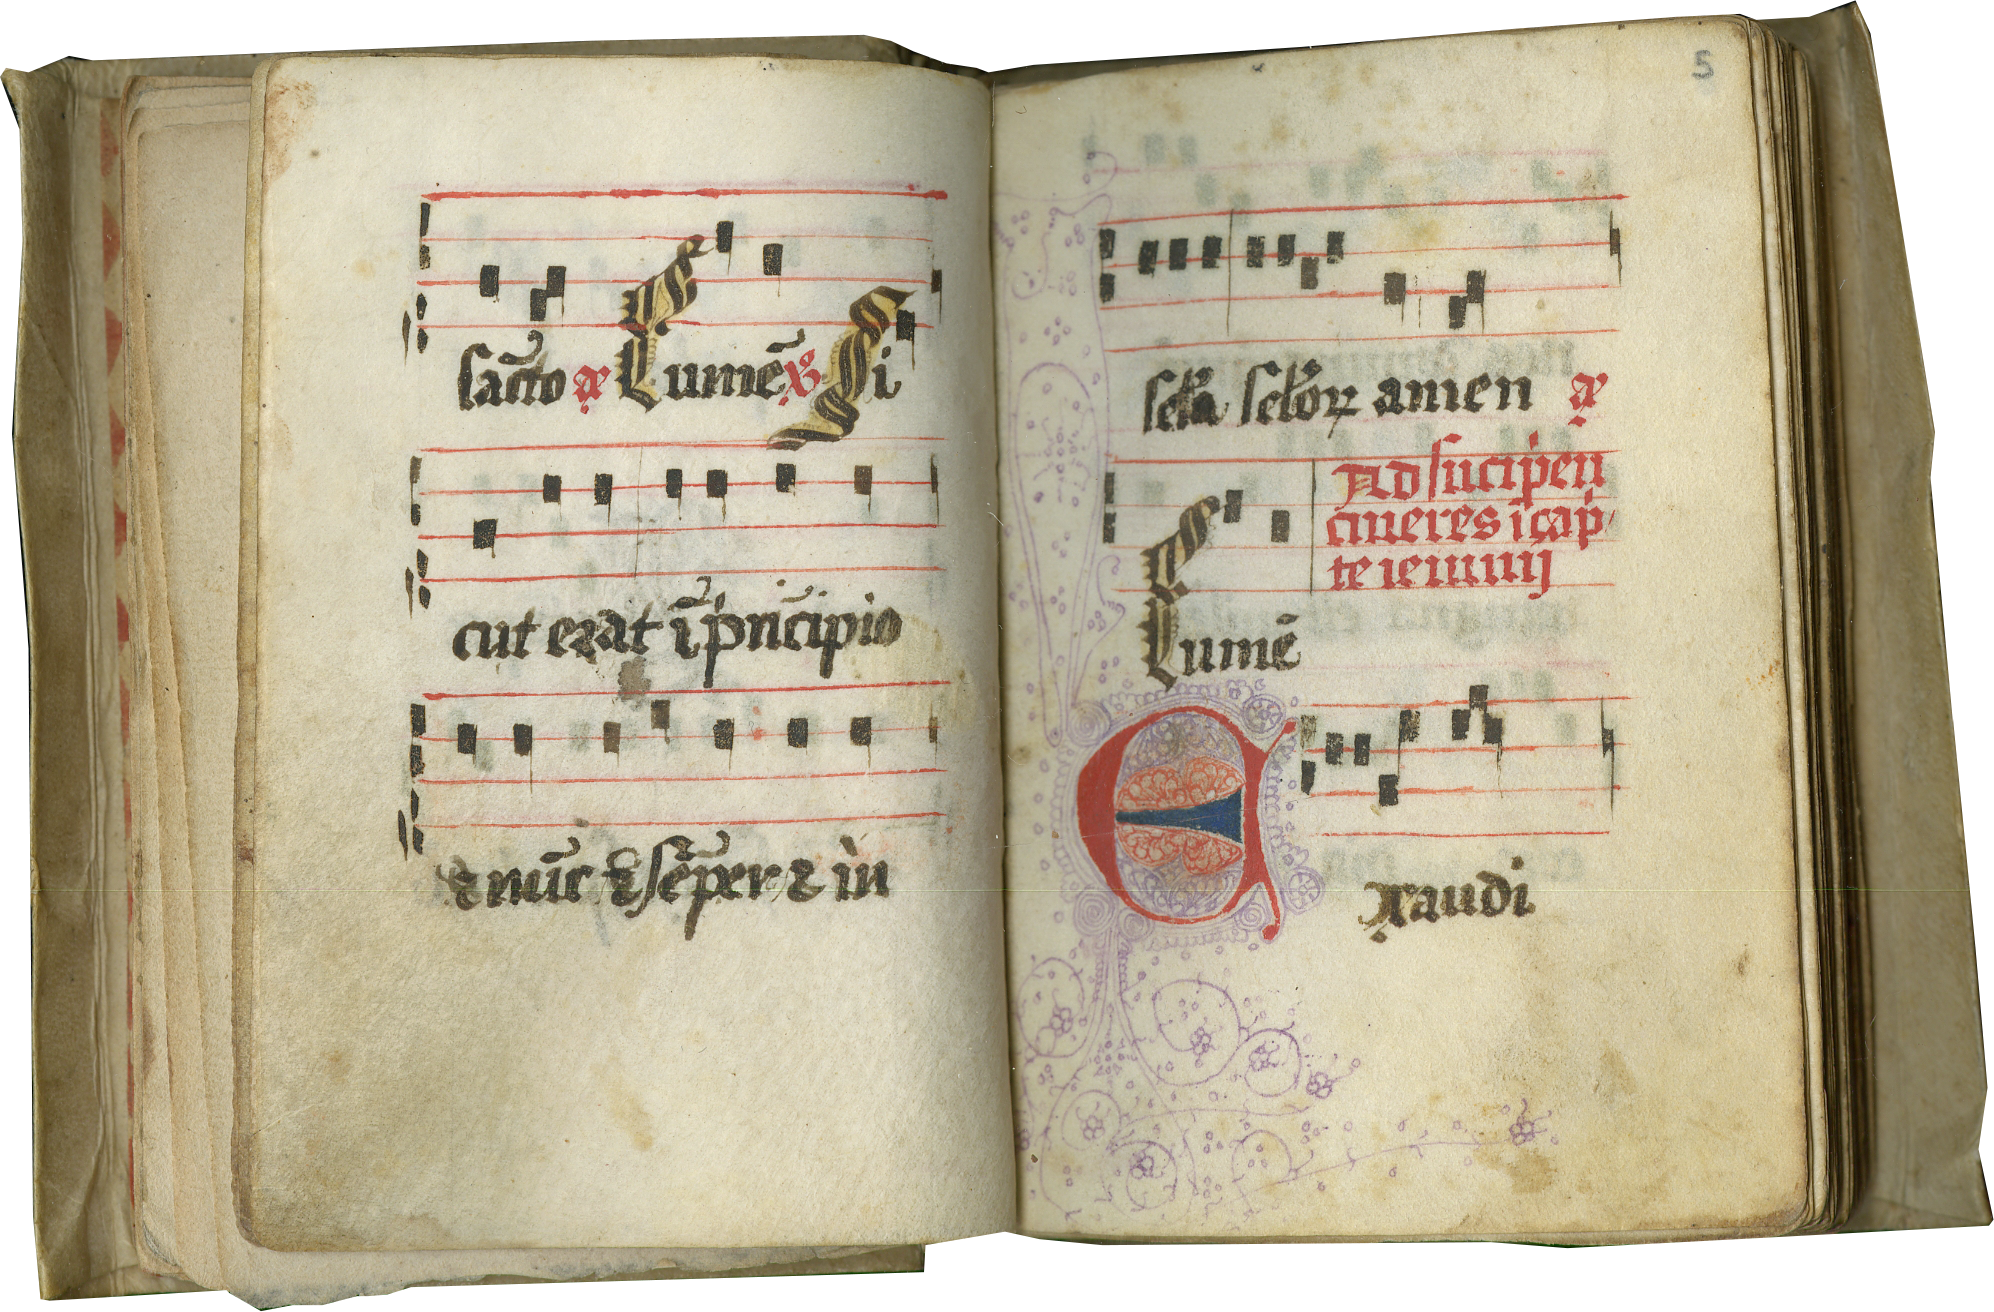 sāc̄to a Lumē ℣ Si
cut erat ī prīcipio
⁊ nūc ⁊ sēper ⁊ in
5
scl̄a scl̄oꝝ amen a
Ad sucipien
cineres ī cap
te ieiunij
Lumē
Exaudi